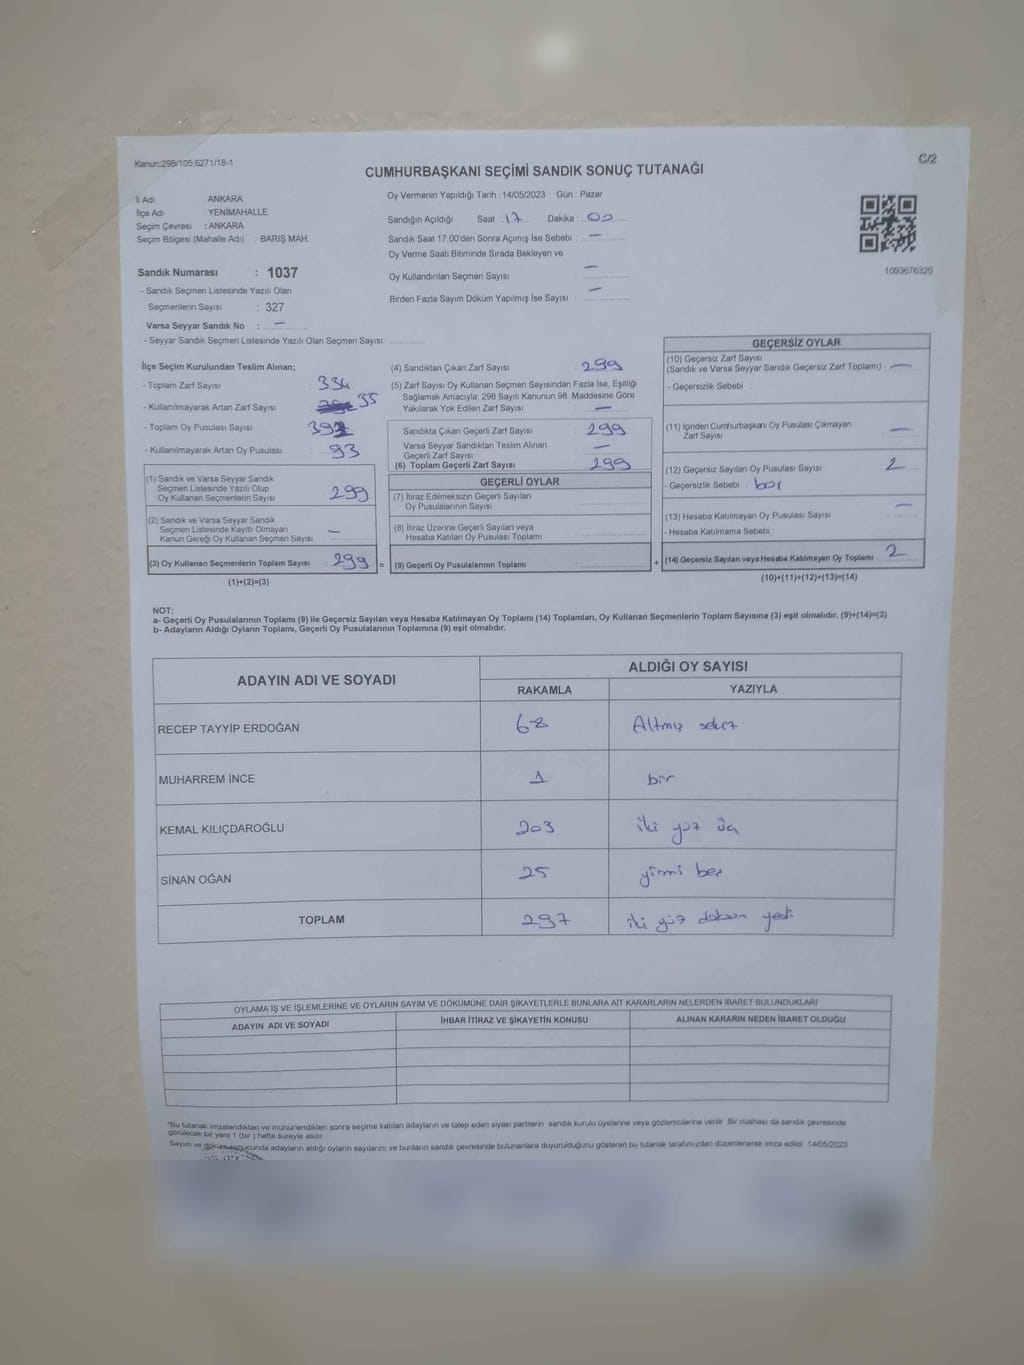 Kanun:298/105;6271/18-1
C/2
CUMHURBAŞKANI SEÇİMİ SANDIK SONUÇ TUTANAĞI
İl Adı ANKARA
İlçe Adı YENİMAHALLE
Seçim Çevresi : ANKARA
Seçim Bölgesi (Mahalle Adı) : BARIŞ MAH.
Sandık Numarası : 1037
- Sandık Seçmen Listesinde Yazılı Olan
Seçmenlerin Sayısı : 327
Varsa Seyyar Sandık No : —
- Seyyar Sandık Seçmen Listesinde Yazılı Olan Seçmen Sayısı:
Oy Vermenin Yapıldığı Tarih : 14/05/2023 Gün : Pazar
Sandığın Açıldığı Saat : 17 Dakika : 00
Sandık Saat 17.00'den Sonra Açımış İse Sebebi : —
Oy Verme Saati Bitiminde Sırada Bekleyen ve
Oy Kullandırılan Seçmen Sayısı : —
Birden Fazla Sayım Döküm Yapılmış İse Sayısı : —
1093676320
İlçe Seçim Kurulundan Teslim Alınan;
- Toplam Zarf Sayısı : 334
- Kullanılmayarak Artan Zarf Sayısı : 35
- Toplam Oy Pusulası Sayısı : 392
- Kullanılmayarak Artan Oy Pusulası : 93
(1) Sandık ve Varsa Seyyar Sandık
Seçmen Listesinde Yazılı Olup
Oy Kullanan Seçmenlerin Sayısı : 299
(2) Sandık ve Varsa Seyyar Sandık
Seçmen Listesinde Kayıtlı Olmayan
Kanun Gereği Oy Kullanan Seçmen Sayısı : —
(3) Oy Kullanan Seçmenlerin Toplam Sayısı : 299
(1)+(2)=(3)
(4) Sandıktan Çıkan Zarf Sayısı : 299
(5) Zarf Sayısı Oy Kullanan Seçmen Sayısından Fazla İse, Eşitliği
Sağlamak Amacıyla, 298 Sayılı Kanunun 98. Maddesine Göre
Yakılarak Yok Edilen Zarf Sayısı : —
Sandıkta Çıkan Geçerli Zarf Sayısı : 299
Varsa Seyyar Sandıktan Teslim Alınan
Geçerli Zarf Sayısı : —
(6) Toplam Geçerli Zarf Sayısı : 299
GEÇERLİ OYLAR
(7) İtiraz Edilmeksizin Geçerli Sayılan
Oy Pusulalarının Sayısı
(8) İtiraz Üzerine Geçerli Sayılan veya
Hesaba Katılan Oy Pusulası Toplamı
= (9) Geçerli Oy Pusulalarının Toplamı
GEÇERSİZ OYLAR
(10) Geçersiz Zarf Sayısı
(Sandık ve Varsa Seyyar Sandık Geçersiz Zarf Toplamı) : —
- Geçersizlik Sebebi :
(11) İçinden Cumhurbaşkanı Oy Pusulası Çıkmayan
Zarf Sayısı : —
(12) Geçersiz Sayılan Oy Pusulası Sayısı : 2
- Geçersizlik Sebebi : boş
(13) Hesaba Katılmayan Oy Pusulası Sayısı : —
- Hesaba Katılmama Sebebi :
+ (14) Geçersiz Sayılan veya Hesaba Katılmayan Oy Toplamı : 2
(10)+(11)+(12)+(13)=(14)
NOT:
a- Geçerli Oy Pusulalarının Toplamı (9) ile Geçersiz Sayılan veya Hesaba Katılmayan Oy Toplamı (14) Toplamları, Oy Kullanan Seçmenlerin Toplam Sayısına (3) eşit olmalıdır. (9)+(14)=(3)
b- Adayların Aldığı Oyların Toplamı, Geçerli Oy Pusulalarının Toplamına (9) eşit olmalıdır.
ADAYIN ADI VE SOYADI ALDIĞI OY SAYISI
RAKAMLA YAZIYLA
RECEP TAYYİP ERDOĞAN 68 Altmış sekiz
MUHARREM İNCE 1 bir
KEMAL KILIÇDAROĞLU 203 iki yüz üç
SİNAN OĞAN 25 yirmi beş
TOPLAM 297 iki yüz doksan yedi
OYLAMA İŞ VE İŞLEMLERİNE VE OYLARIN SAYIM VE DÖKÜMÜNE DAİR ŞİKAYETLERLE BUNLARA AİT KARARLARIN NELERDEN İBARET BULUNDUKLARI
ADAYIN ADI VE SOYADI İHBAR İTİRAZ VE ŞİKAYETİN KONUSU ALINAN KARARIN NEDEN İBARET OLDUĞU
"Bu tutanak imzalandıktan ve mühürlendikten sonra seçime katılan adayların ve talep eden siyasi partilerin sandık kurulu üyelerine veya gözlemcilerine verilir. Bir nüshası da sandık çevresinde
görülecek bir yere 1 (bir ) hafta süreyle asılır.
Sayım ve döküm sonucunda adayların aldığı oyların sayılarını ve bunların sandık çevresinde bulunanlara duyurulduğunu gösteren bu tutanak tarafımızdan düzenlenerek imza edildi. 14/05/2023